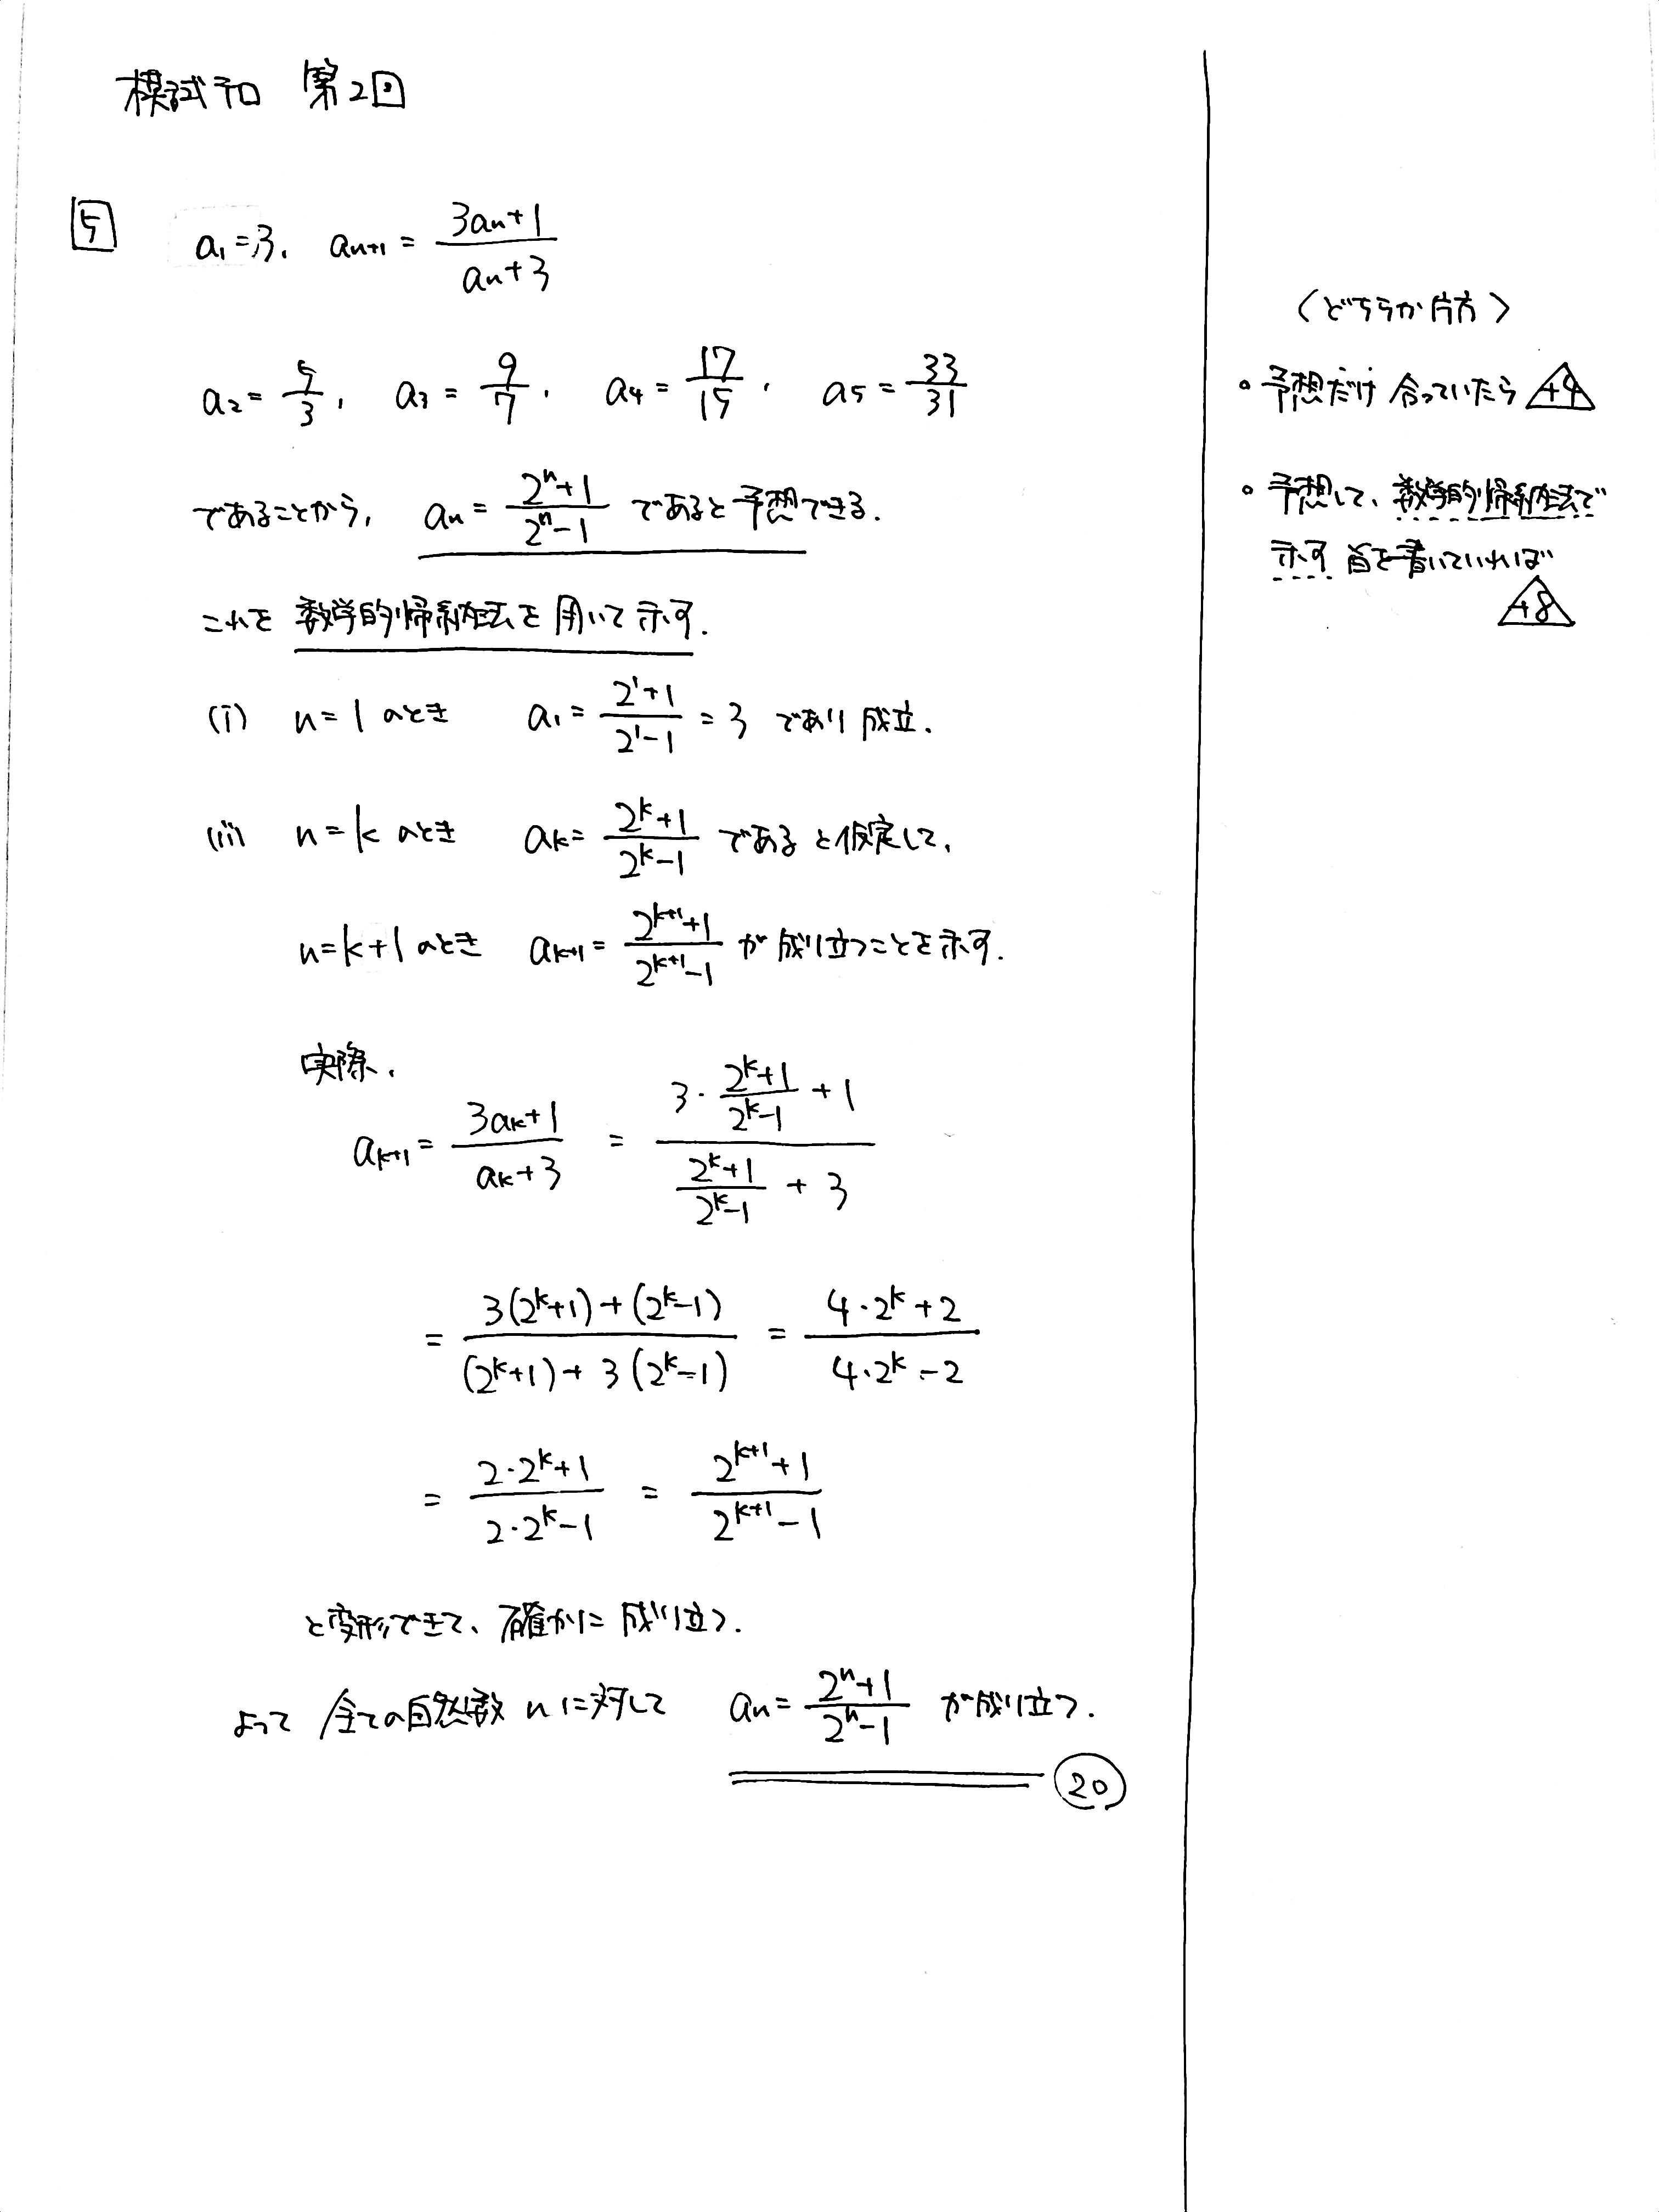 模試テロ 第2回
5 a₁=3, aₙ₊₁ = (3aₙ+1)/(aₙ+3)
a₂ = 5/3, a₃ = 9/7, a₄ = 17/15, a₅ = 33/31
であることから, aₙ = (2ⁿ+1)/(2ⁿ-1) であると予想できる.
これを 数学的帰納法を用いて示す.
(i) n=1のとき a₁ = (2¹+1)/(2¹-1) = 3 であり成立.
(ii) n=kのとき aₖ = (2ᵏ+1)/(2ᵏ-1) であると仮定して,
n=k+1のとき aₖ₊₁ = (2ᵏ⁺¹+1)/(2ᵏ⁺¹-1) が成り立つことを示す.
実際,
aₖ₊₁ = (3aₖ+1)/(aₖ+3) = (3・(2ᵏ+1)/(2ᵏ-1) + 1)/((2ᵏ+1)/(2ᵏ-1) + 3)
= (3(2ᵏ+1)+(2ᵏ-1))/((2ᵏ+1)+3(2ᵏ-1)) = (4・2ᵏ+2)/(4・2ᵏ-2)
= (2・2ᵏ+1)/(2・2ᵏ-1) = (2ᵏ⁺¹+1)/(2ᵏ⁺¹-1)
と変形できて、確かに成り立つ.
よって 全ての自然数nに対して aₙ = (2ⁿ+1)/(2ⁿ-1) が成り立つ.
20
〈どちらか片方〉
・予想だけ合っていたら +4
・予想して、数学的帰納法で
示す 旨を書いていれば
+8